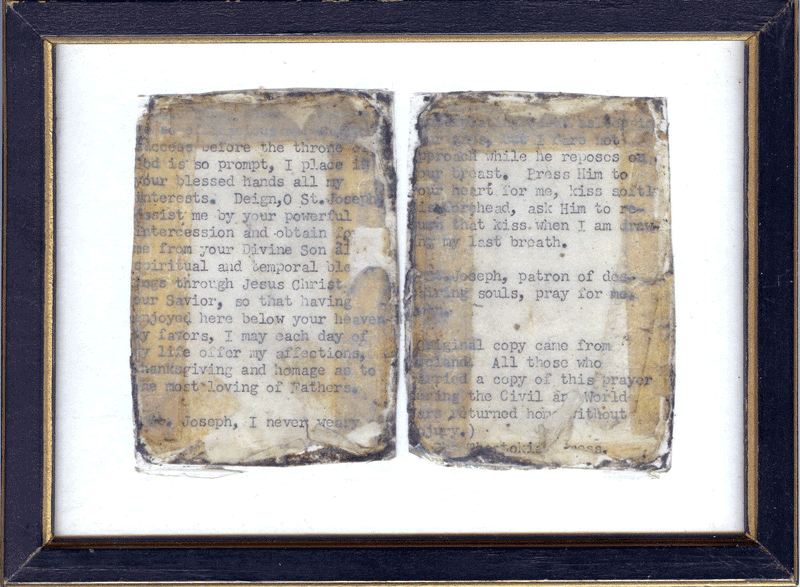 success before the throne
is so prompt, I place in
your blessed hands all my
interests. Deign,O St. Joseph,
assist me by your powerful
intercession and obtain for
me from your Divine Son
spiritual and temporal
through Jesus Christ
our Savior, so that having
enjoyed here below your heaven-
ly favors, I may each day of
my life offer my affections,
thanksgiving and homage as to
the most loving of Fathers.
Joseph, I never weary
I dare not
approach while he reposes on
your breast. Press Him to
your heart for me, kiss softly
forehead, ask Him to re-
that kiss when I am draw-
ing my last breath.
St. Joseph, patron of des-
souls, pray for me.
Original copy came from
Ireland. All those who
carried a copy of this prayer
during the Civil World
returned home without
injury.)